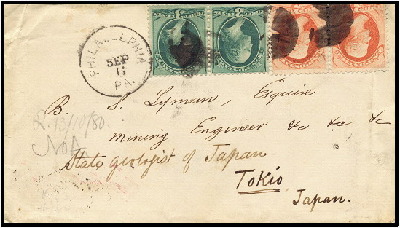 PHILADELPHIA
SEP
11
PA.
B. S. Lyman, Esquire
Mining Engineer &c &c &c
State geologist of Japan
Tokio
Japan.